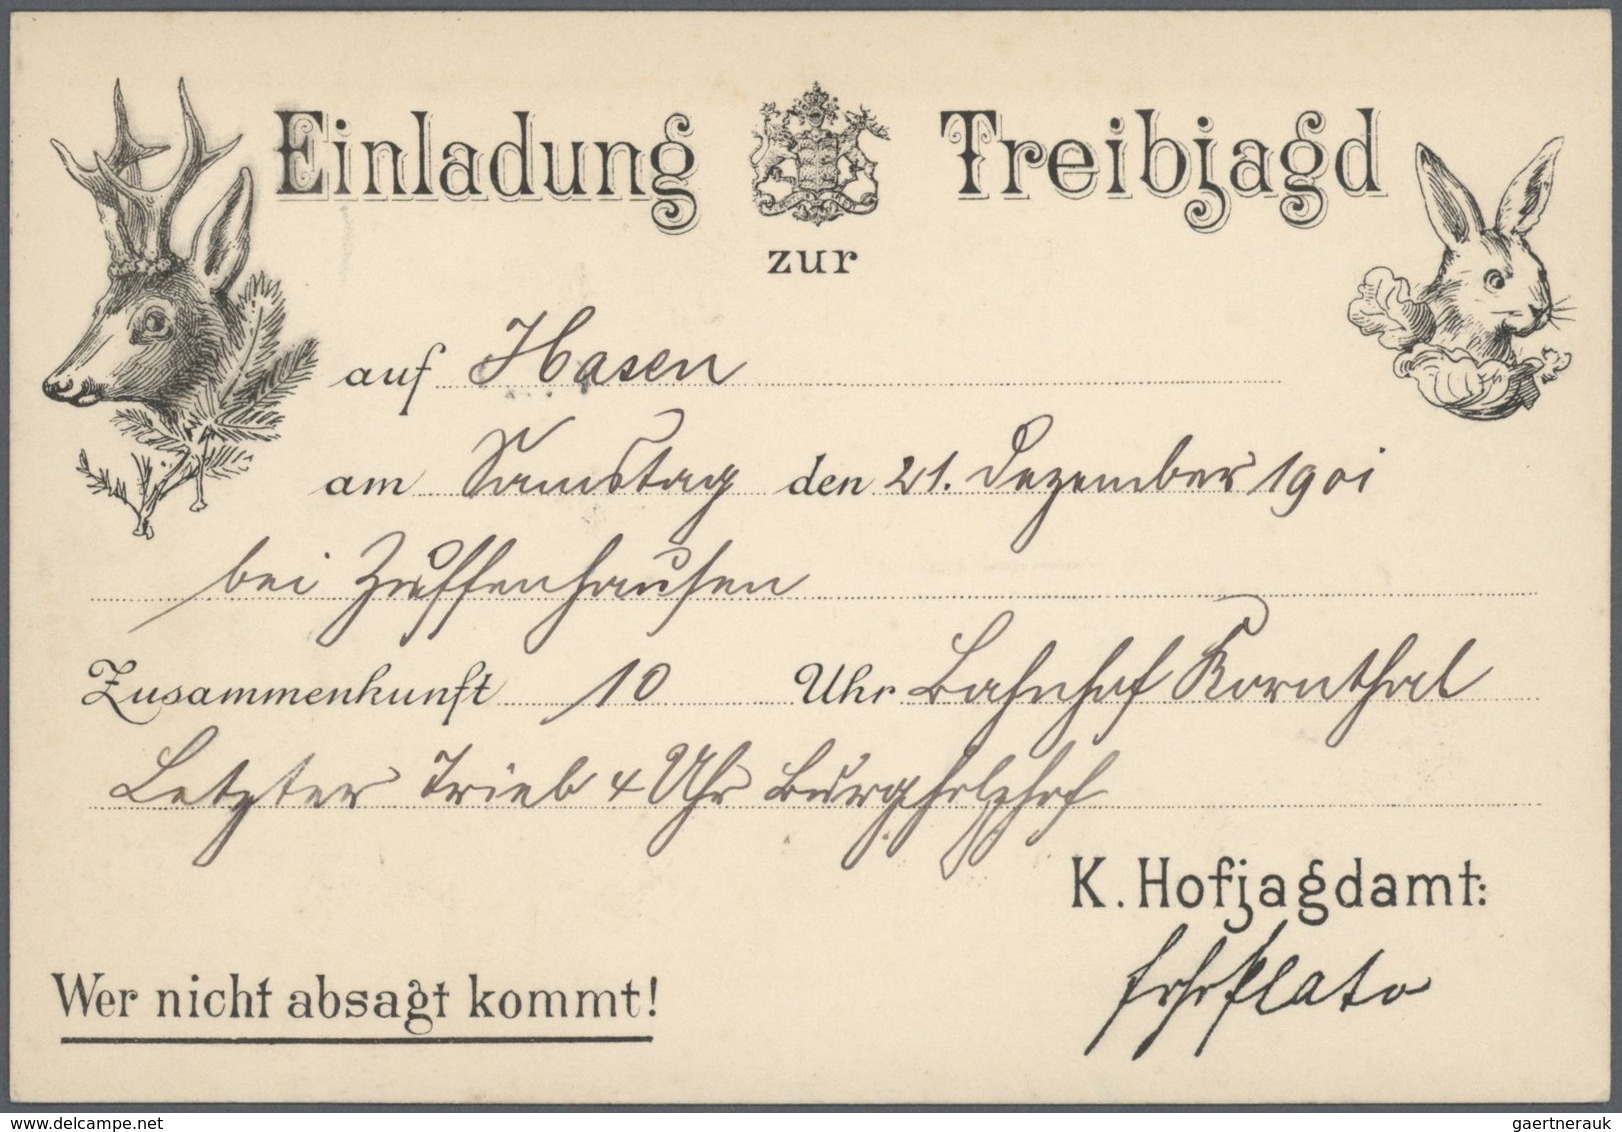 Einladung zur Treibjagd
auf Hasen
am Samstag den 21. Dezember 1901
bei Zuffenhausen
Zusammenkunft 10 Uhr Bahnhof Kornthal
Letzter Trieb 4 Uhr Burgholzhof
K. Hofjagdamt:
Plato
Wer nicht absagt kommt!
delcampe.net
gaertnerauk